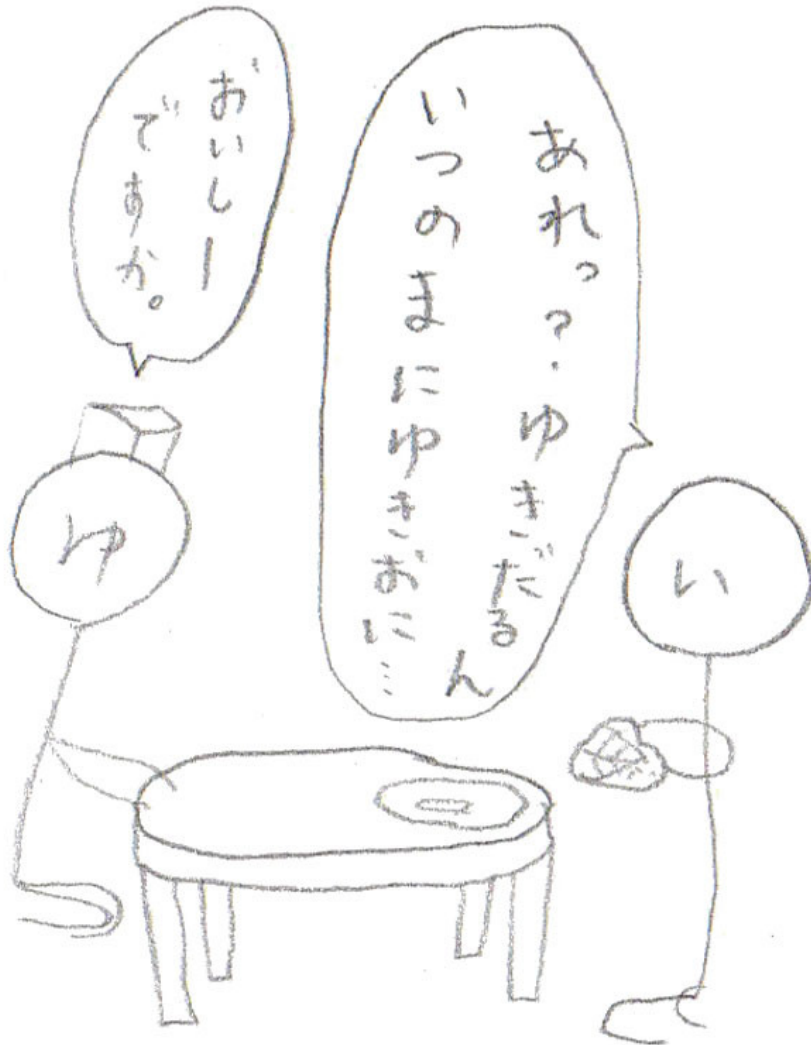 あれっ?ゆきだるん
いつのまにゆきおに…
い
おいしー
ですか。
ゆ